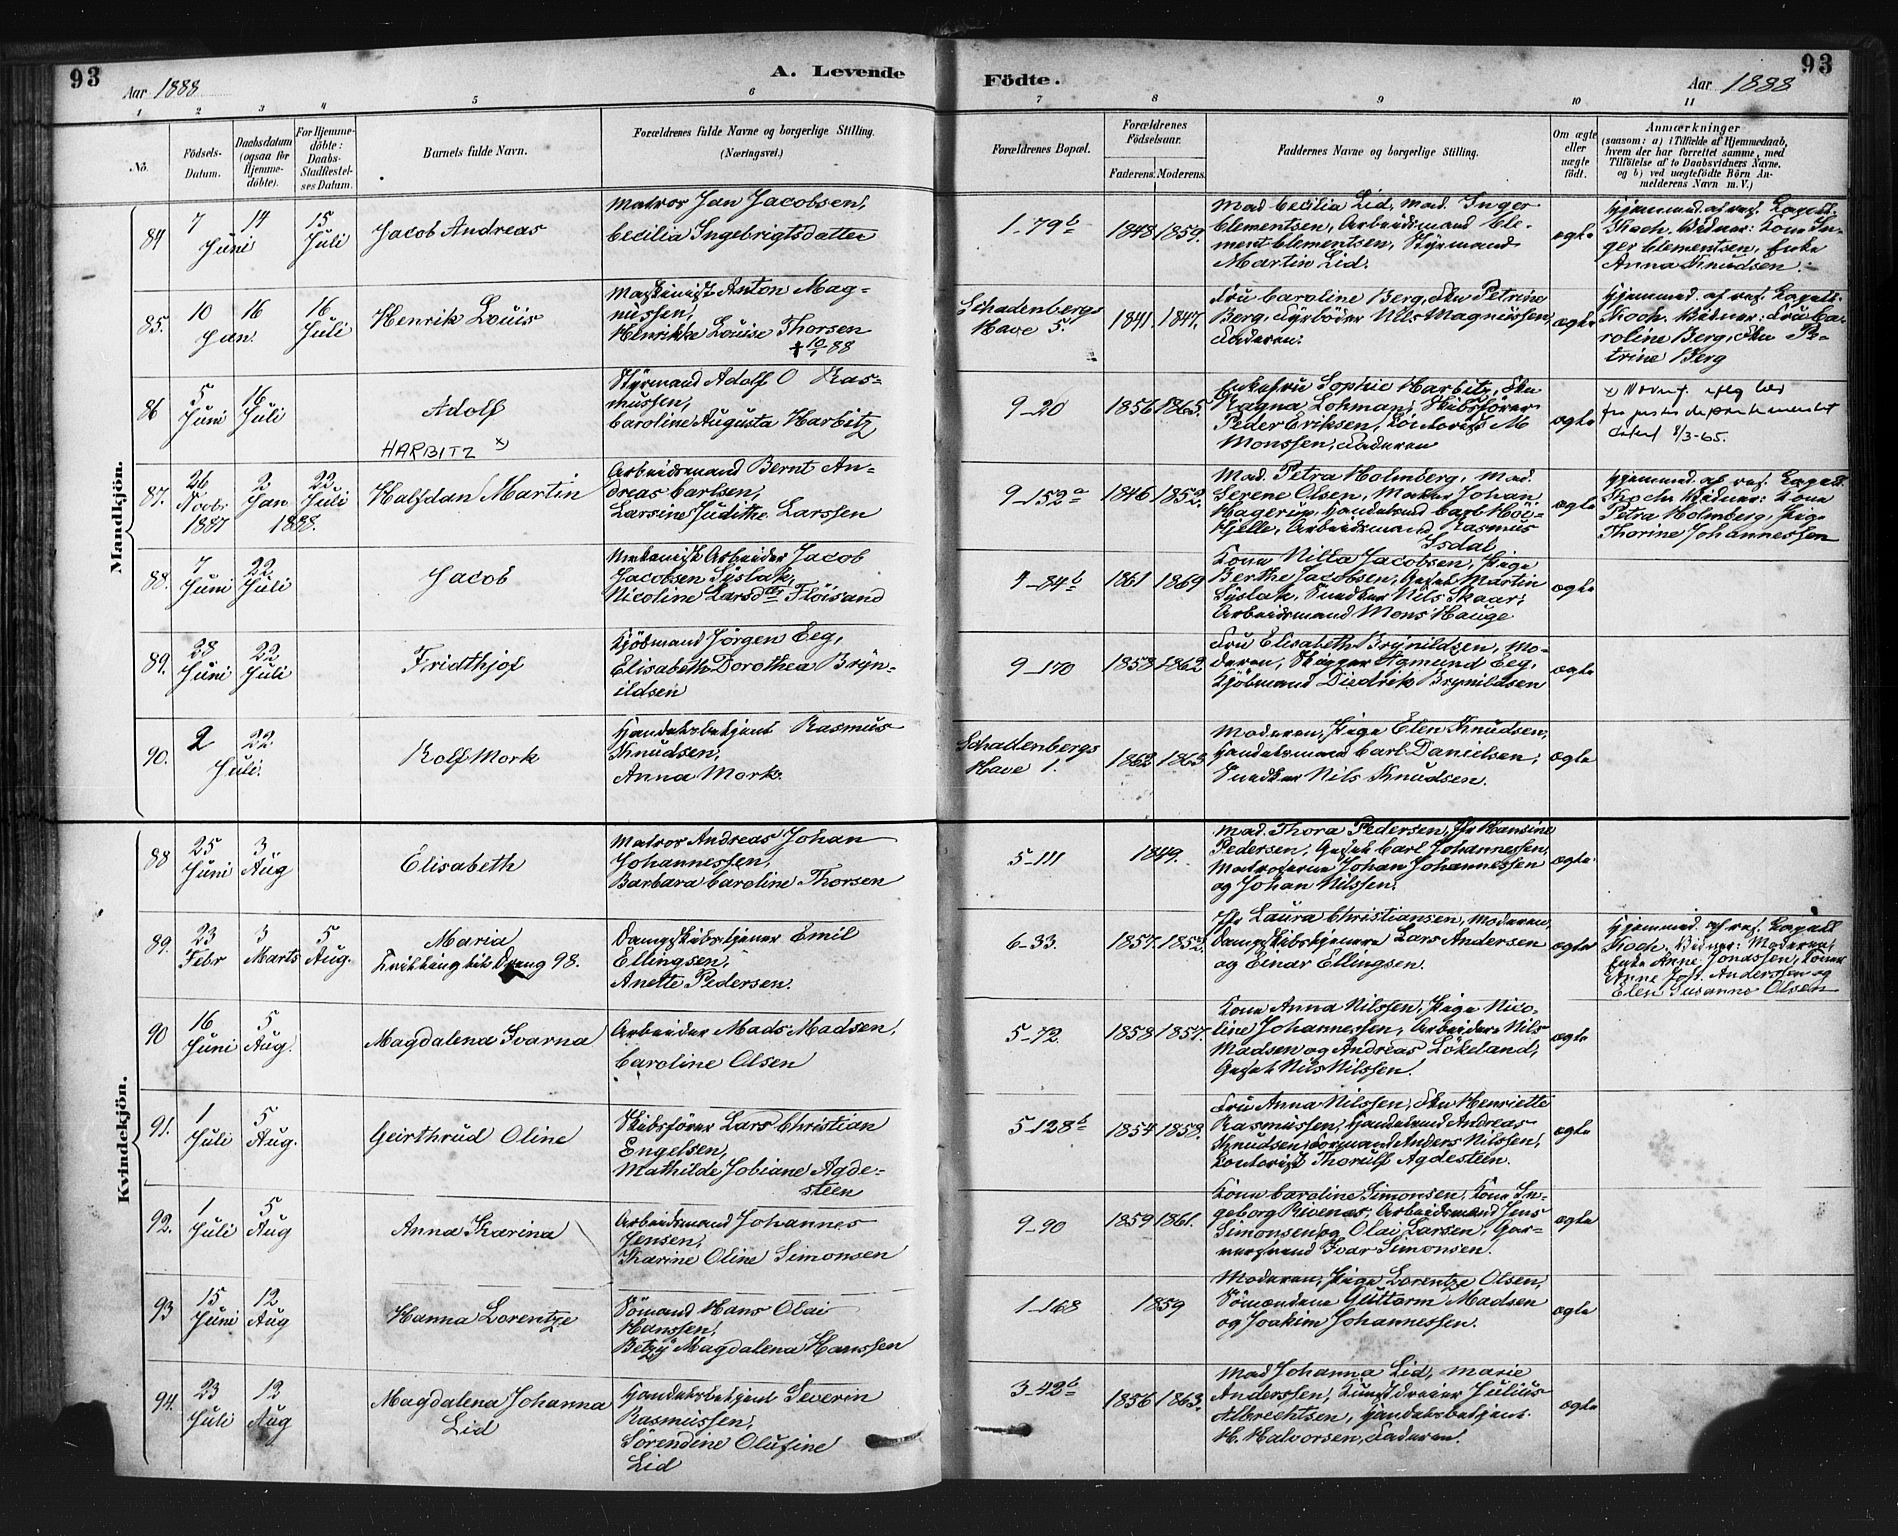 93
Aar 1888
A. Levende
Födte.
Aar 1888
93
1 2 3 4 5 6 7 8 9 10 11
No.
Födsels-Datum.
Daabsdatum (ogsaa for Hjemme-döbte).
For Hjemme-döbte: Daabs-Stadfæstel-ses Datum.
Barnets fulde Navn.
Forældrenes fulde Navne og borgerlige Stilling. (Næringsvei.)
Forældrenes Bopæl.
Forældrenes Födselsaar.
Faderens. Moderens.
Faddernes Navne og borgerlige Stilling.
Om ægte eller uægte födt.
Anmærkninger
(saasom: a) i Tilfælde af Hjemmedaab, hvem der har forrettet samme, med Tilföielse af to Daabsvidners Navne. og b) ved uægtefödte Börn An-melderens Navn m. V.)
Mandkjön.
84
7 14 15
Juni Juli
Jacob Andreas
Matros Jan Jacobsen,
Cecilia Ingebrigtsdatter
1-79b
1848 1859.
Mad Cecilia Lid, Mad. Inger
Clementsen, Arbeidsmand Cle-
ment Clementsen, Styrmand
Martin Lid.
ægte
Hjemmed. af res. Kapell.
Koch. Vidner: Kone In-
ger Clementsen, Enke
Anna Knudsen.
85.
10 16 16
Jan. Juli
Henrik Louis
Maskinist Anton Mag-
nussen,
Henrikke Louise Thorsen
† 10/1 88
Schadenbergs
Have 5.
1841. 1847.
Fru Caroline Berg, Frk Petrine
Berg, Fyrböder Nils Magnussen,
Faderen.
ægte
Hjemmed. af res. Kapell.
Koch. Vidner: Fru Ca-
roline Berg, Frk Pe-
trine Berg
86
5 16
Juni Juli
Adolf
HARBITZ x)
Styrmand Adolf O Ras-
mussen,
Caroline Augusta Harbitz
9-20
1856 1865.
Enkefru Sophie Harbitz, Frk
Ragna Lohman, Skibsförer
Peder Eriksen, Kontorist M
Monssen, Faderen
ægte
x) Navnet
fra justisdepartementet
datert 8/3-65.
87.
26 2 22
Novbr Jan Juli
1887 1888.
Halfdan Martin
Arbeidsmand Bernt An-
dreas Carlsen,
Larsine Judithe Larssen
9-152a
1846 1852.
Mad. Petra Holmberg, Mad.
Serene Olsen, Matros Johan
Hagerup, Handelsmd Carl Höi-
Hjelle, Arbeidsmand Rasmus
Isdal
ægte
Hjemmed. af res. Kapell.
Koch. Vidner: Kone
Petra Holmberg, Pige
Thorine Johannessen
88.
7 22
Juni Juli
Jacob
Mekanisk Arbeider Jacob
Jacobsen Syslak,
Nicoline Larsdtr Flöisand
9-84b
1861 1869
Kone Nilla Jacobsen, Pige
Berthe Jacobsen, Gaset Martin
Syslak, Snedker Nils Skaar,
Arbeidsmand Mons Hauge
ægte
89.
28 22
Juni Juli
Fridthjof
Kjöbmand Jörgen Eeg,
Elisabeth Dorothea Bryn-
ildsen
9-170
1858 1862
Fru Elisabeth Brynildsen, Mo-
deren, Skipper Agmund Eeg,
Kjöbmand Diedrik Brynildsen
ægte
90.
2 22
Juli.
Rolf Mork
Handelsbetjent Rasmus
Knudsen,
Anna Mork.
Schadenbergs
Have 1.
1862 1863
Moderen, Pige Elen Knudsen,
Handelsmand Carl Danielsen,
Snedker Nils Knudsen.
ægte
Kvindekjön.
88
25 3
Juni Aug
Elisabeth
Matros Andreas Johan
Johannessen,
Barbara Caroline Thorsen
5-111
1849.
Mad. Thora Pedersen, Jfr Hansine
Pedersen, Gaset Carl Johannessen,
Matroserne Johan Johannessen
og Johan Nilssen.
ægte
89.
23 3 5
Febr Marts Aug.
Maria
Tvilling til Dreng 98.
Dampskibstjener Emil
Ellingsen,
Anette Pedersen.
6-33.
1857. 1852.
Jfr Laura Christiansen, Moderen,
Dampskibstjenere Lars Andersen
og Einar Ellingsen.
ægte
Hjemmed. af res. Kapell
Koch. Vidner: Moderen,
Enke Anne Jonassen, Konen
Anne Joh. Anderssen og
Elen Susanne Olsen
90
16 5
Juni Aug.
Magdalena Ivarna
Arbeider Mads Madsen,
Caroline Olsen
5-72.
1858 1857.
Kone Anna Nilssen, Pige Nico-
line Johannessen, Arbeidere Nils
Madsen og Andreas Lökeland,
Gaset Nils Nilssen.
ægte
91.
1 5
Juli Aug.
Geirthrud Oline
Skibsförer Lars Christian
Engelsen,
Mathilde Jobiane Agde-
steen
5-128b
1854 1858.
Fru Anna Nilssen, Frk Henriette
Rasmussen, Handelsmd Andreas
Knudsen, Formand Anders Nilssen,
Kontorist Thorulf Agdesteen.
ægte
92.
1 5
Juli Aug
Anna Karina
Arbeidsmand Johannes
Jensen,
Karine Oline Simonsen
9-90
1859 1861.
Kone Caroline Simonsen, Kone In-
geborg Rivenæs, Arbeidsmænd Jens
Simonsen og Olai Larsen, Gar-
versvend Ivar Simonsen.
ægte
93
15 12
Juni Aug
Hanna Lorentze
Sömand Hans Olai
Hanssen,
Betzy Magdalena Hanssen
1-168
1859
Moderen, Pige Lorentze Olsen,
Sömændene Guttorm Madsen
og Joakim Johannessen.
ægte
94.
23 12
Juli Aug
Magdalena Johanna
Lid
Handelsbetjent Severin
Rasmussen,
Sörendine Olufine
Lid
3-42b
1856 1863.
Mad Johanna Lid, Marie
Anderssen, Kunstdreier Julius
Albrechtsen, Handelsbetjent
H. Halvorsen, Faderen.
ægte